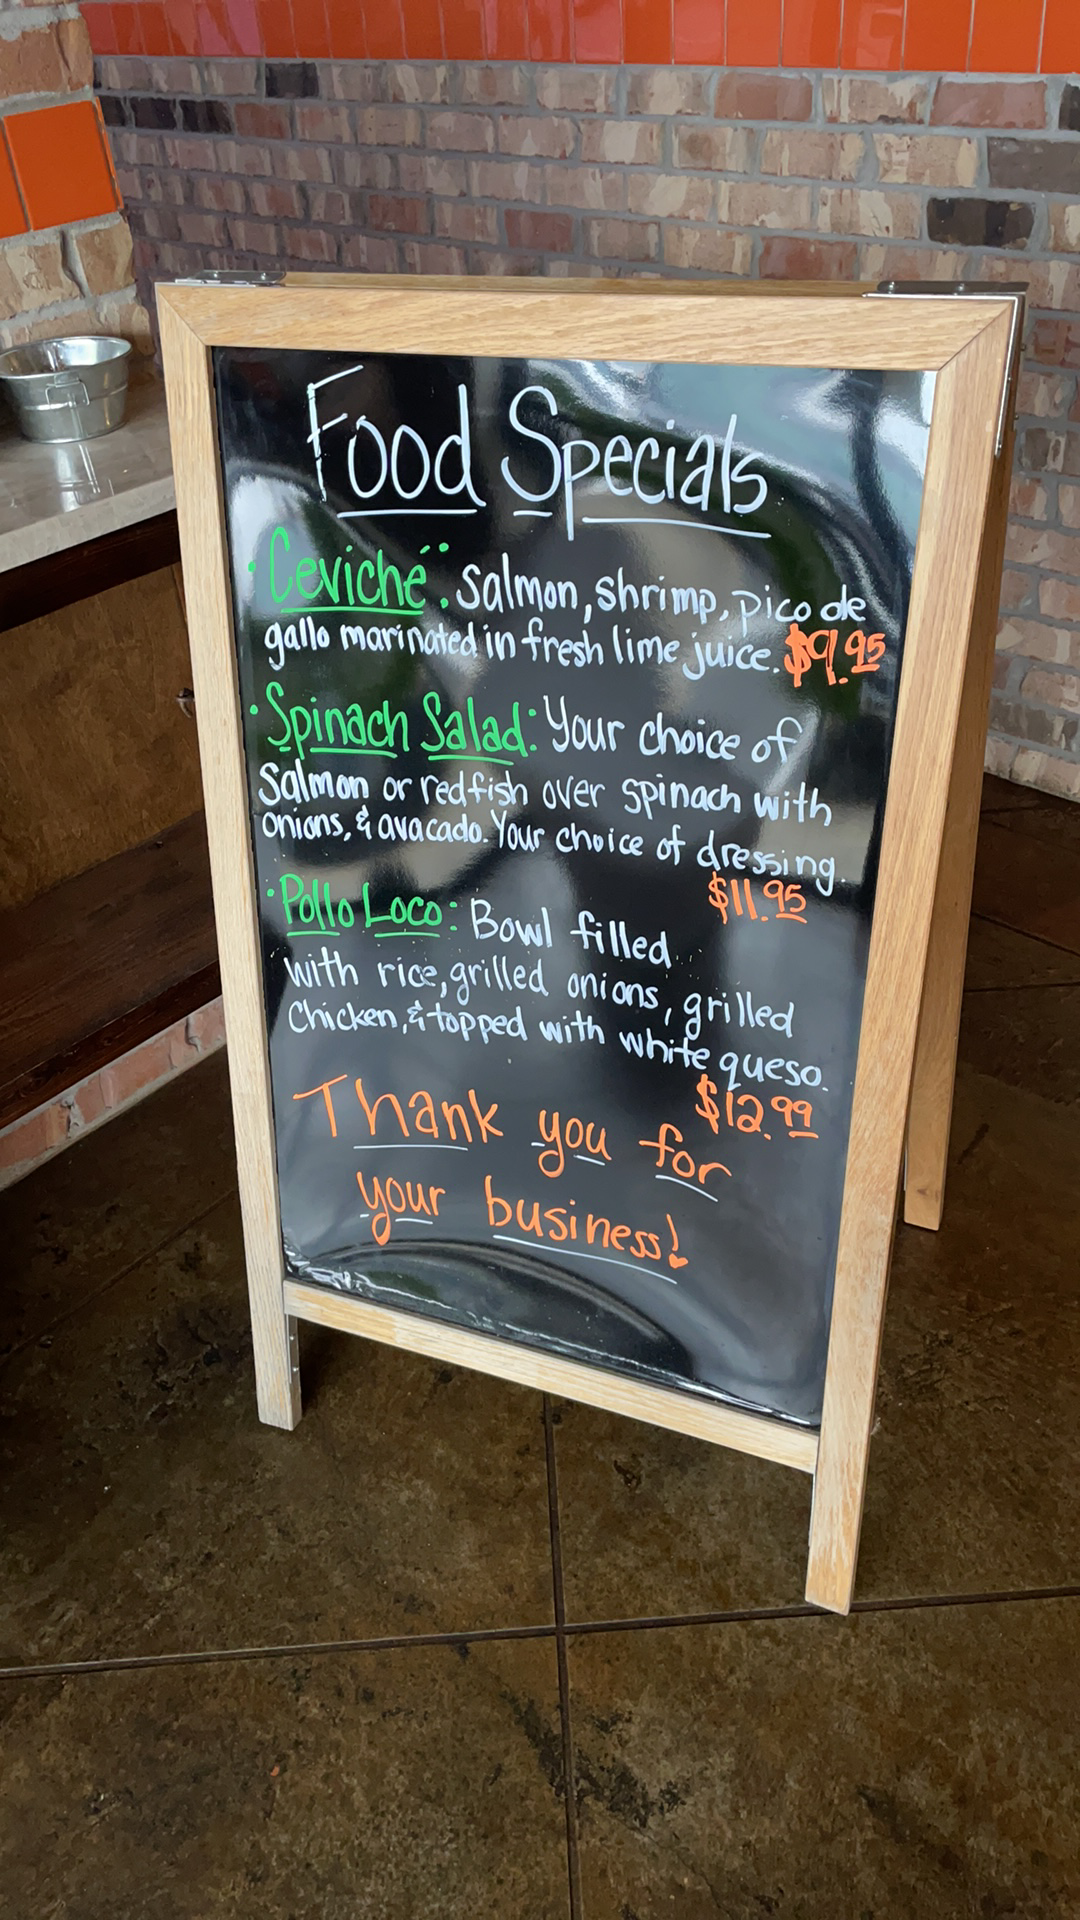 Food Specials
• Ceviché: Salmon, shrimp, pico de
gallo marinated in fresh lime juice. $9.95
• Spinach Salad: Your choice of
Salmon or redfish over spinach with
Onions, & avacado. Your choice of dressing.
$11.95
• Pollo Loco: Bowl filled
with rice, grilled onions, grilled
Chicken, & topped with white queso.
$12.99
Thank you for
your business!